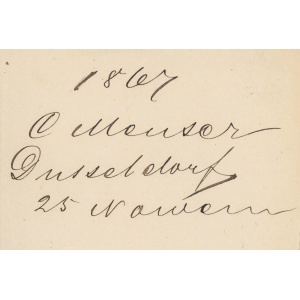 1867
C Meuser
Dusseldorf
25 Novem